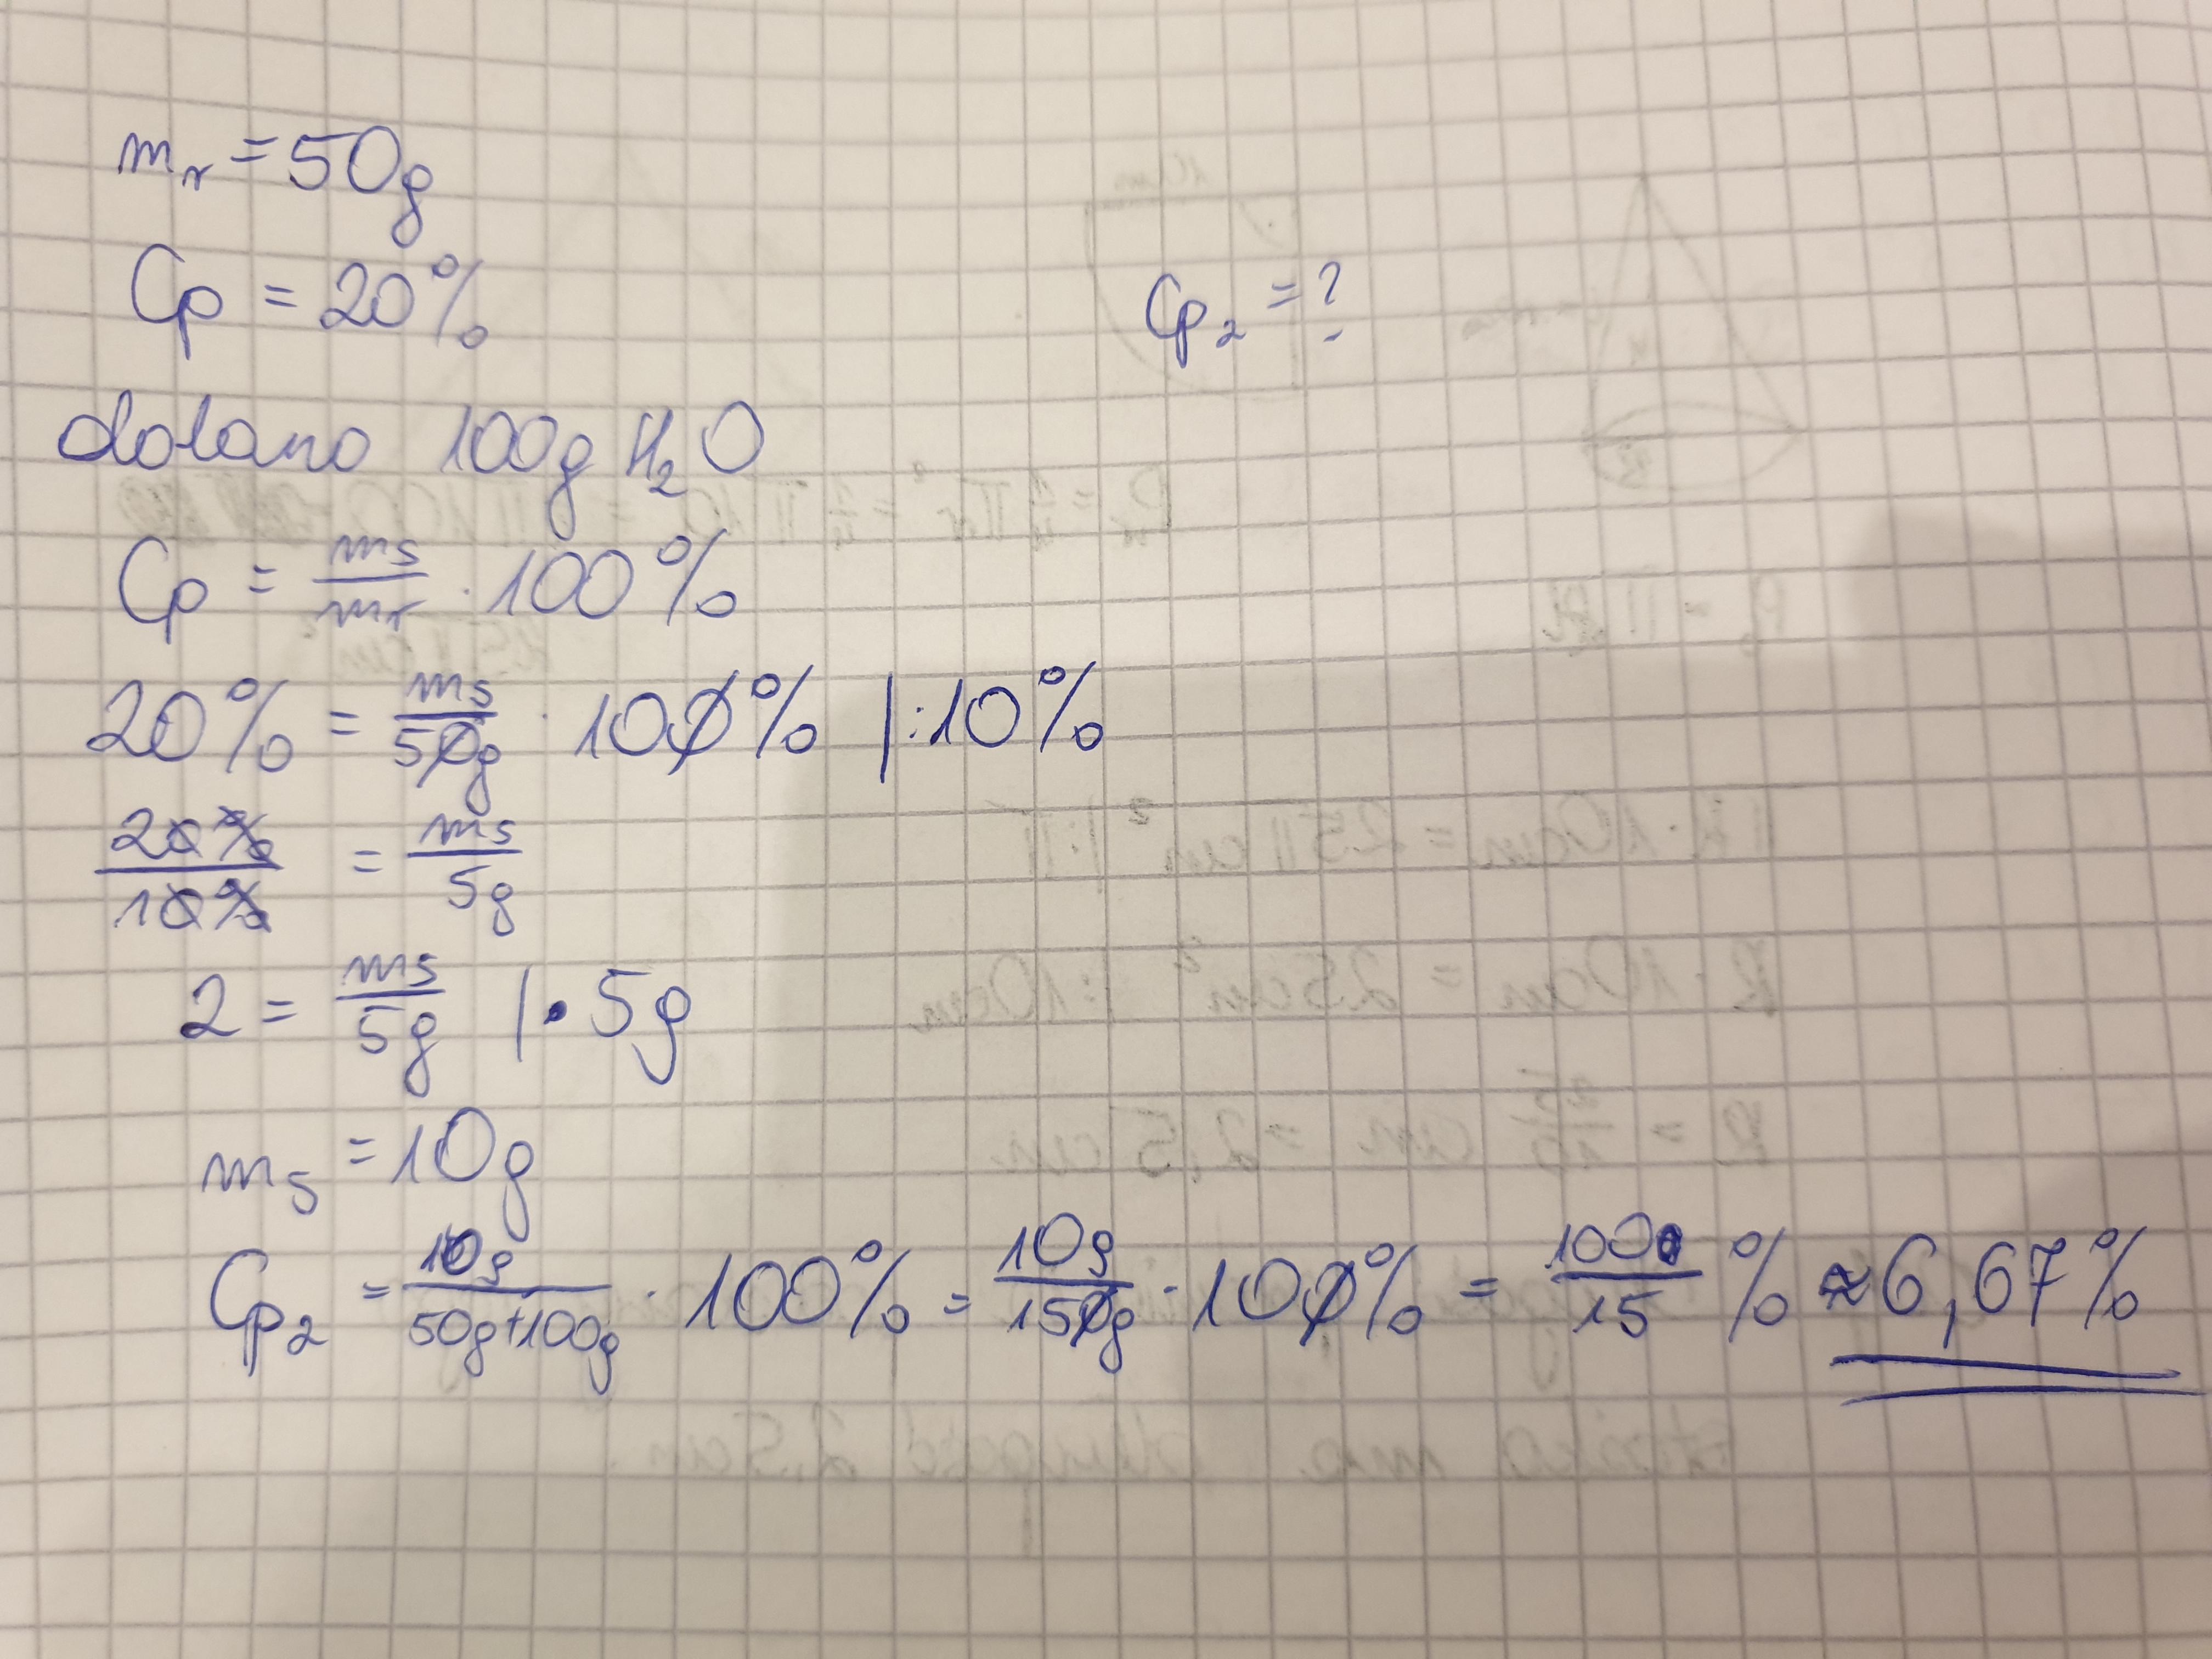 m_r = 50g
Cp = 20%
Cp_2 = ?
dolano 100g H_2O
Cp = ms/mr · 100%
20% = ms/50g · 100% |:10%
20%/10% = ms/5g
2 = ms/5g | · 5g
m_s = 10g
Cp_2 = 10g/50g+100g · 100% = 10g/150g · 100% = 100/15 % ≈ 6,67%